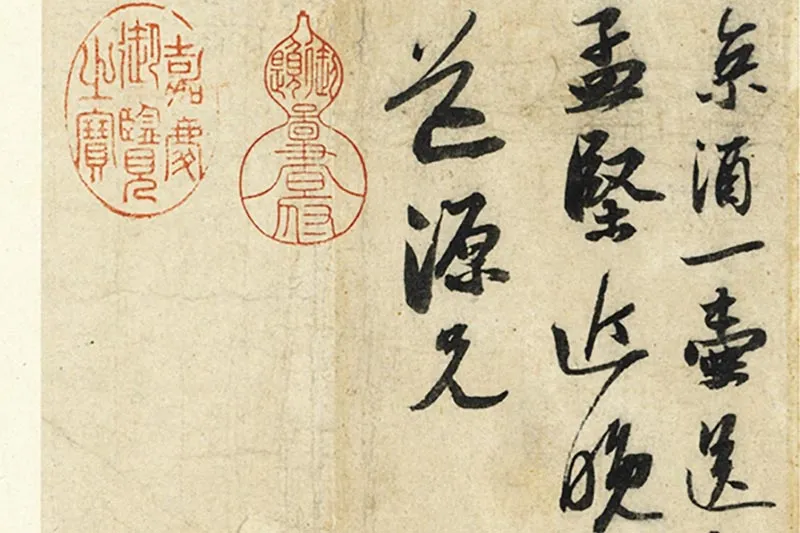 京酒一壺送
孟堅近晚
道源兄
御題
嘉慶
御覽
之寶